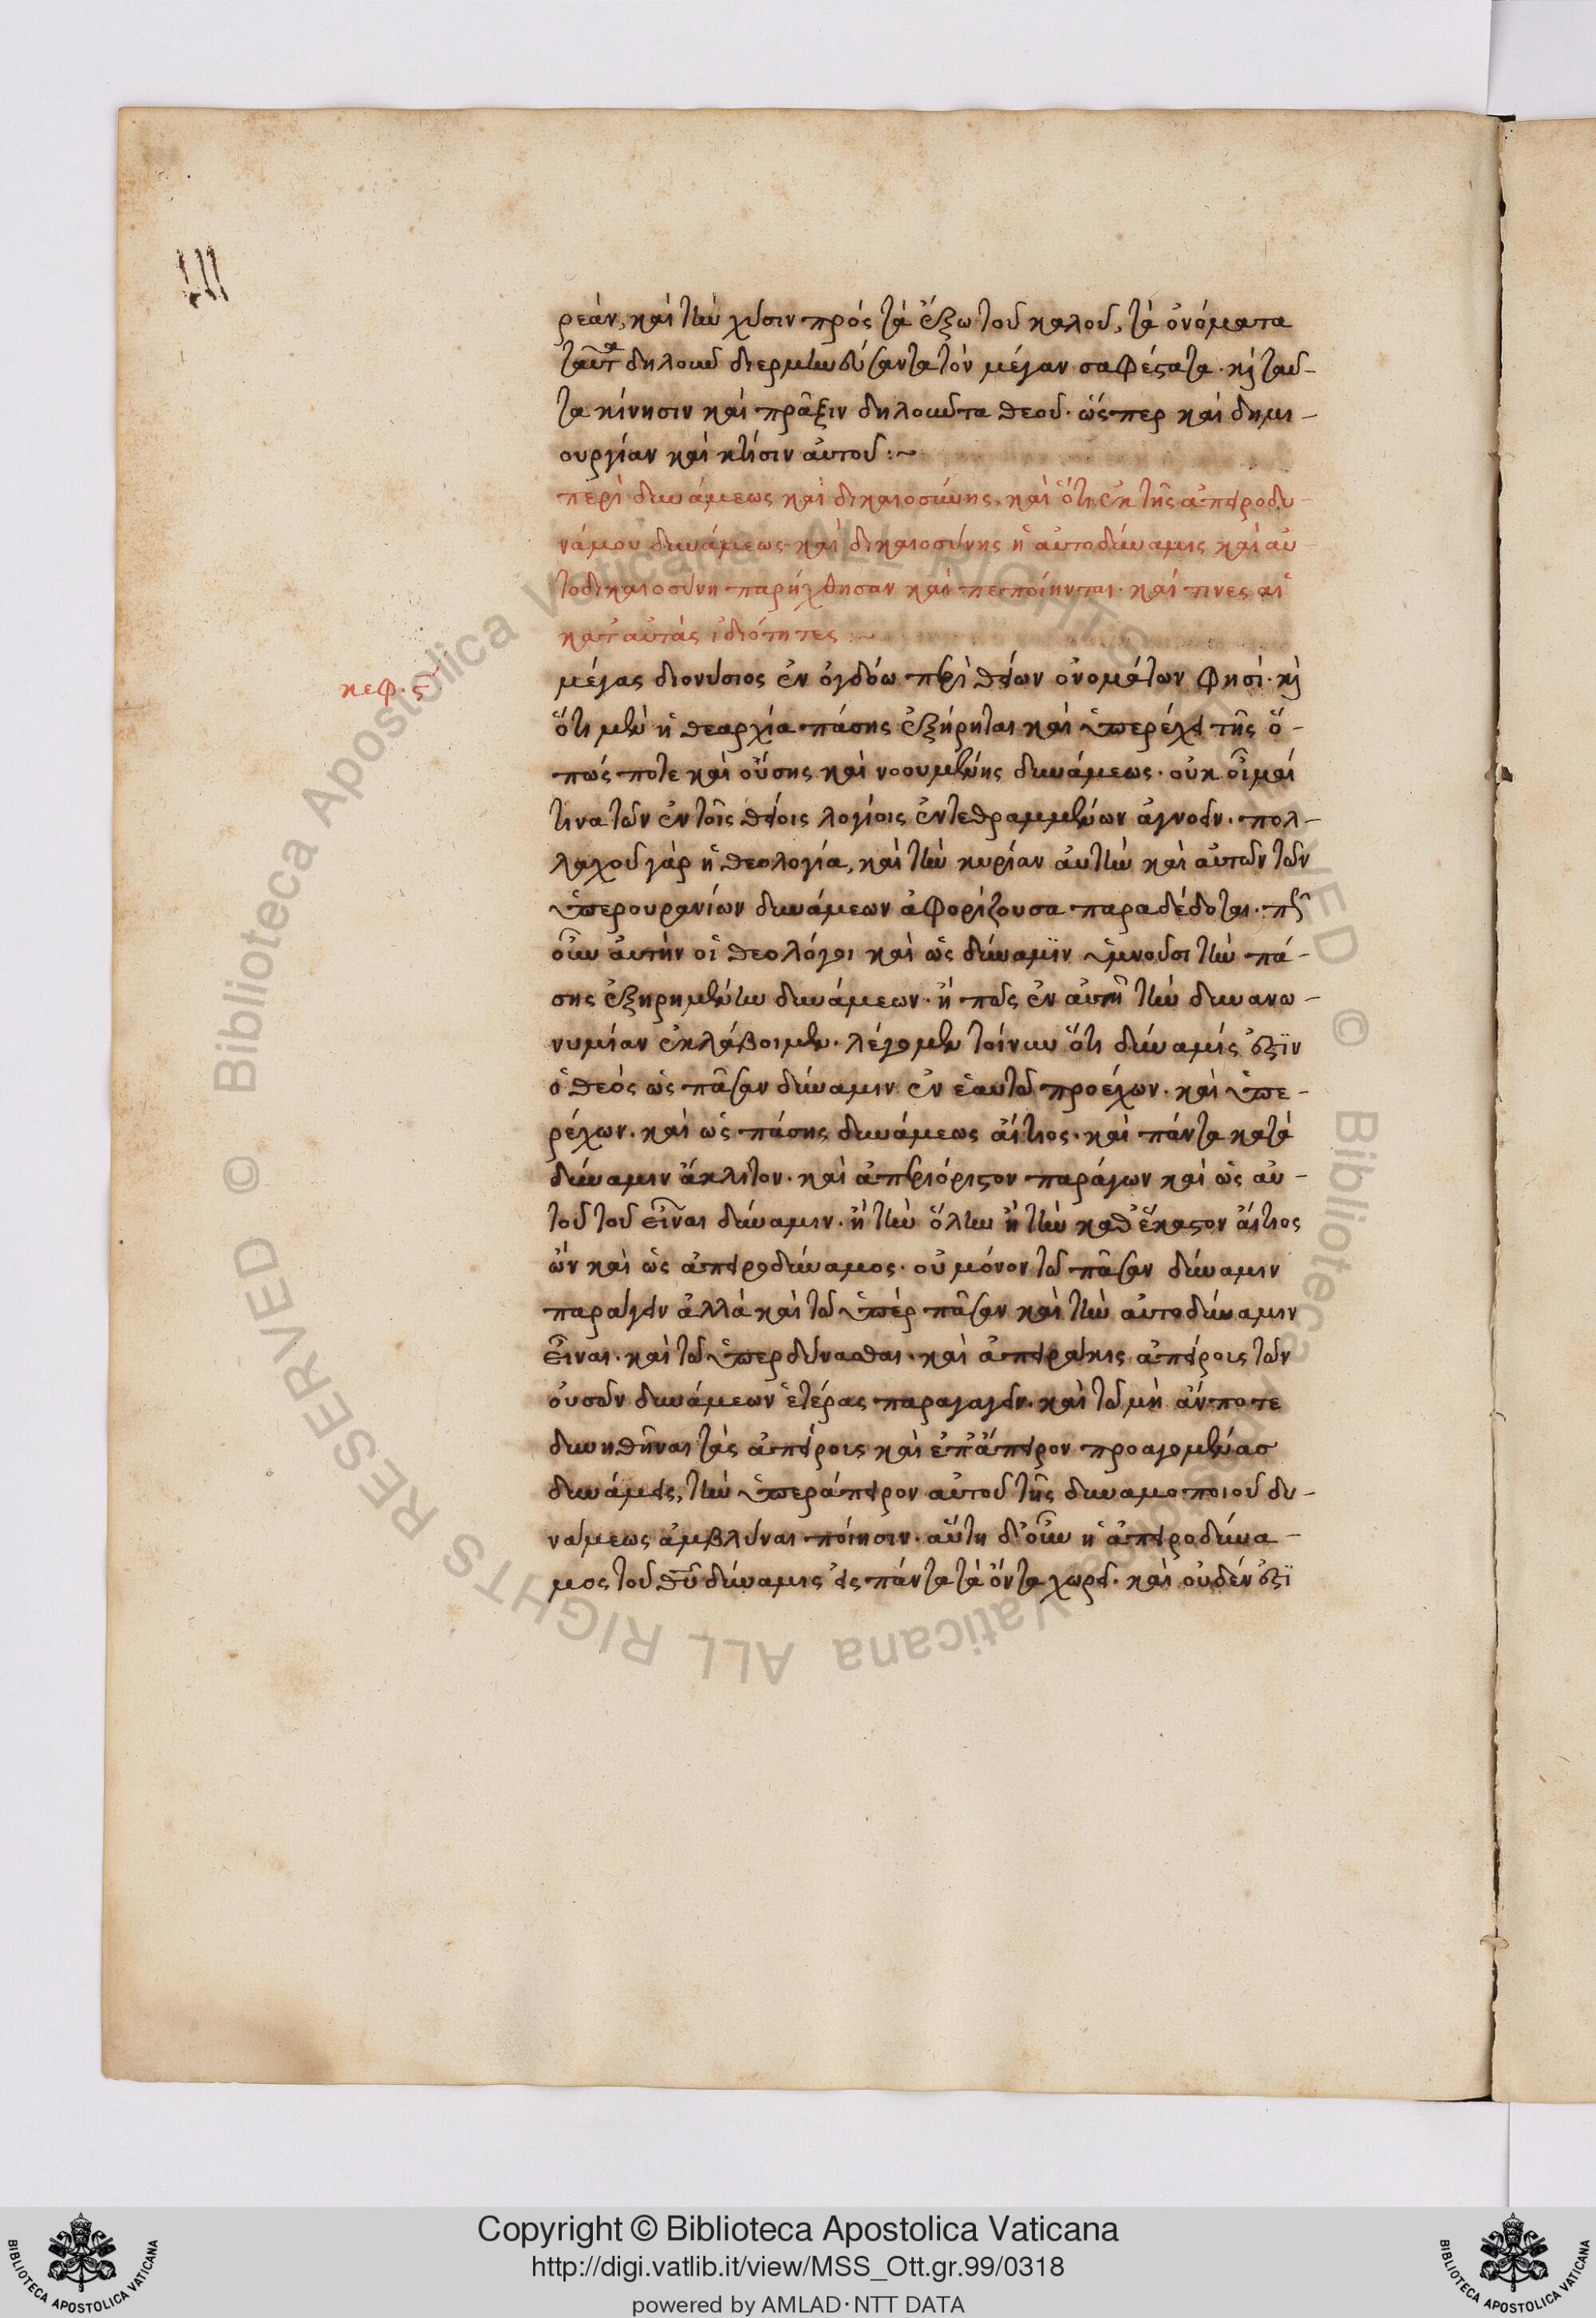 ρεάν, καὶ τὴν χύσιν πρὸς τὰ ἔξω τοῦ καλοῦ, τὰ ὀνόματα
ταῦτα δηλοῦν διερμηνεύσαντα τὸν μέγαν σαφέστατα· κὶ ταῦ-
τα κίνησιν καὶ πρᾶξιν δηλοῦντα θεοῦ· ὥσπερ καὶ δημι-
ουργίαν καὶ κτίσιν αὐτοῦ :~
περὶ δυνάμεως καὶ δικαιοσύνης, καὶ ὅτι ἐκ τῆς ἀπειροδυ-
νάμου δυνάμεως καὶ δικαιοσύνης ἡ αὐτοδύναμις καὶ αὐ-
τοδικαιοσύνη παρήχθησαν καὶ πεποίηνται· καὶ τινες αἱ
κατ' αὐτὰς ἰδιότητες :~
κεφ. ϛ'
μέγας διονύσιος ἐν ὀγδόω περὶ θείων ὀνομάτων φησί· κὶ
ὅτι μὲν ἡ θεαρχία πάσης ἐξήρηται καὶ ὑπερέχει τῆς ὅ-
πώς ποτε καὶ οὔσης καὶ νοουμένης δυνάμεως· οὐκ οἶμαί
τινα τῶν ἐν τοῖς θείοις λογίοις ἐντεθραμμένων ἀγνοεῖν· πολ-
λαχοῦ γὰρ ἡ θεολογία, καὶ τὴν κυρίαν αὐτὴν καὶ αὐτῶν τῶν
ὑπερουρανίων δυνάμεων ἀφορίζουσα παραδέδοται· πῶς
οὖν αὐτὴν οἱ θεολόγοι καὶ ὡς δύναμϊν ὑμνοῦσι τὴν πά-
σης ἐξηρημένην δυνάμεων· ἢ πῶς ἐν αὐτῆ τὴν δυνανω-
νυμίαν ἐκλάβοιμεν· λέγομεν τοίνυν ὅτι δύναμίς ἐστϊν
ὁ θεὸς ὡς πᾶσαν δύναμιν ἐν ἑαυτῶ προέχων· καὶ ὑπε-
ρέχων· καὶ ὡς πάσης δυνάμεως αἴτιος· καὶ πάντα κατὰ
δύναμιν ἄκλιτον· καὶ ἀπεριόριστον παράγων καὶ ὡς αὐ-
τοῦ τοῦ εἶναι δύναμιν· ἢ τὴν ὅλην ἢ τὴν καθ' ἕκαστον αἴτιος
ὢν καὶ ὡς ἀπειροδύναμος· οὐ μόνον τῶ πᾶσαν δύναμιν
παράγειν ἀλλὰ καὶ τῶ ὑπὲρ πᾶσαν καὶ τὴν αὐτοδύναμιν
εἶναι· καὶ τῶ ὑπερδύνασθαι· καὶ ἀπειράκις ἀπείρους τῶν
οὐσῶν δυνάμεων ἑτέρας παραγαγεῖν· καὶ τῶ μὴ ἄν ποτε
δυνηθῆναι τὰς ἀπείρους καὶ ἐπ' ἄπειρον προαγομένας
δυνάμεις, τὴν ὑπεράπειρον αὐτοῦ τῆς δυναμοποιοῦ δυ-
νάμεως ἀμβλύναι ποίησιν· αὕτη δ' οὖν ἡ ἀπειροδύνα-
μος τοῦ θυ δύναμις εἰς πάντα τὰ ὄντα χωρεῖ· καὶ οὐδέν ἐστϊ
Copyright © Biblioteca Apostolica Vaticana
http://digi.vatlib.it/view/MSS_Ott.gr.99/0318
powered by AMLAD·NTT DATA
BIBLIOTECA APOSTOLICA VATICANA
BIBLIOTECA APOSTOLICA VATICANA
© Biblioteca Apostolica Vaticana ALL RIGHTS RESERVED © Biblioteca Apostolica Vaticana ALL RIGHTS RESERVED